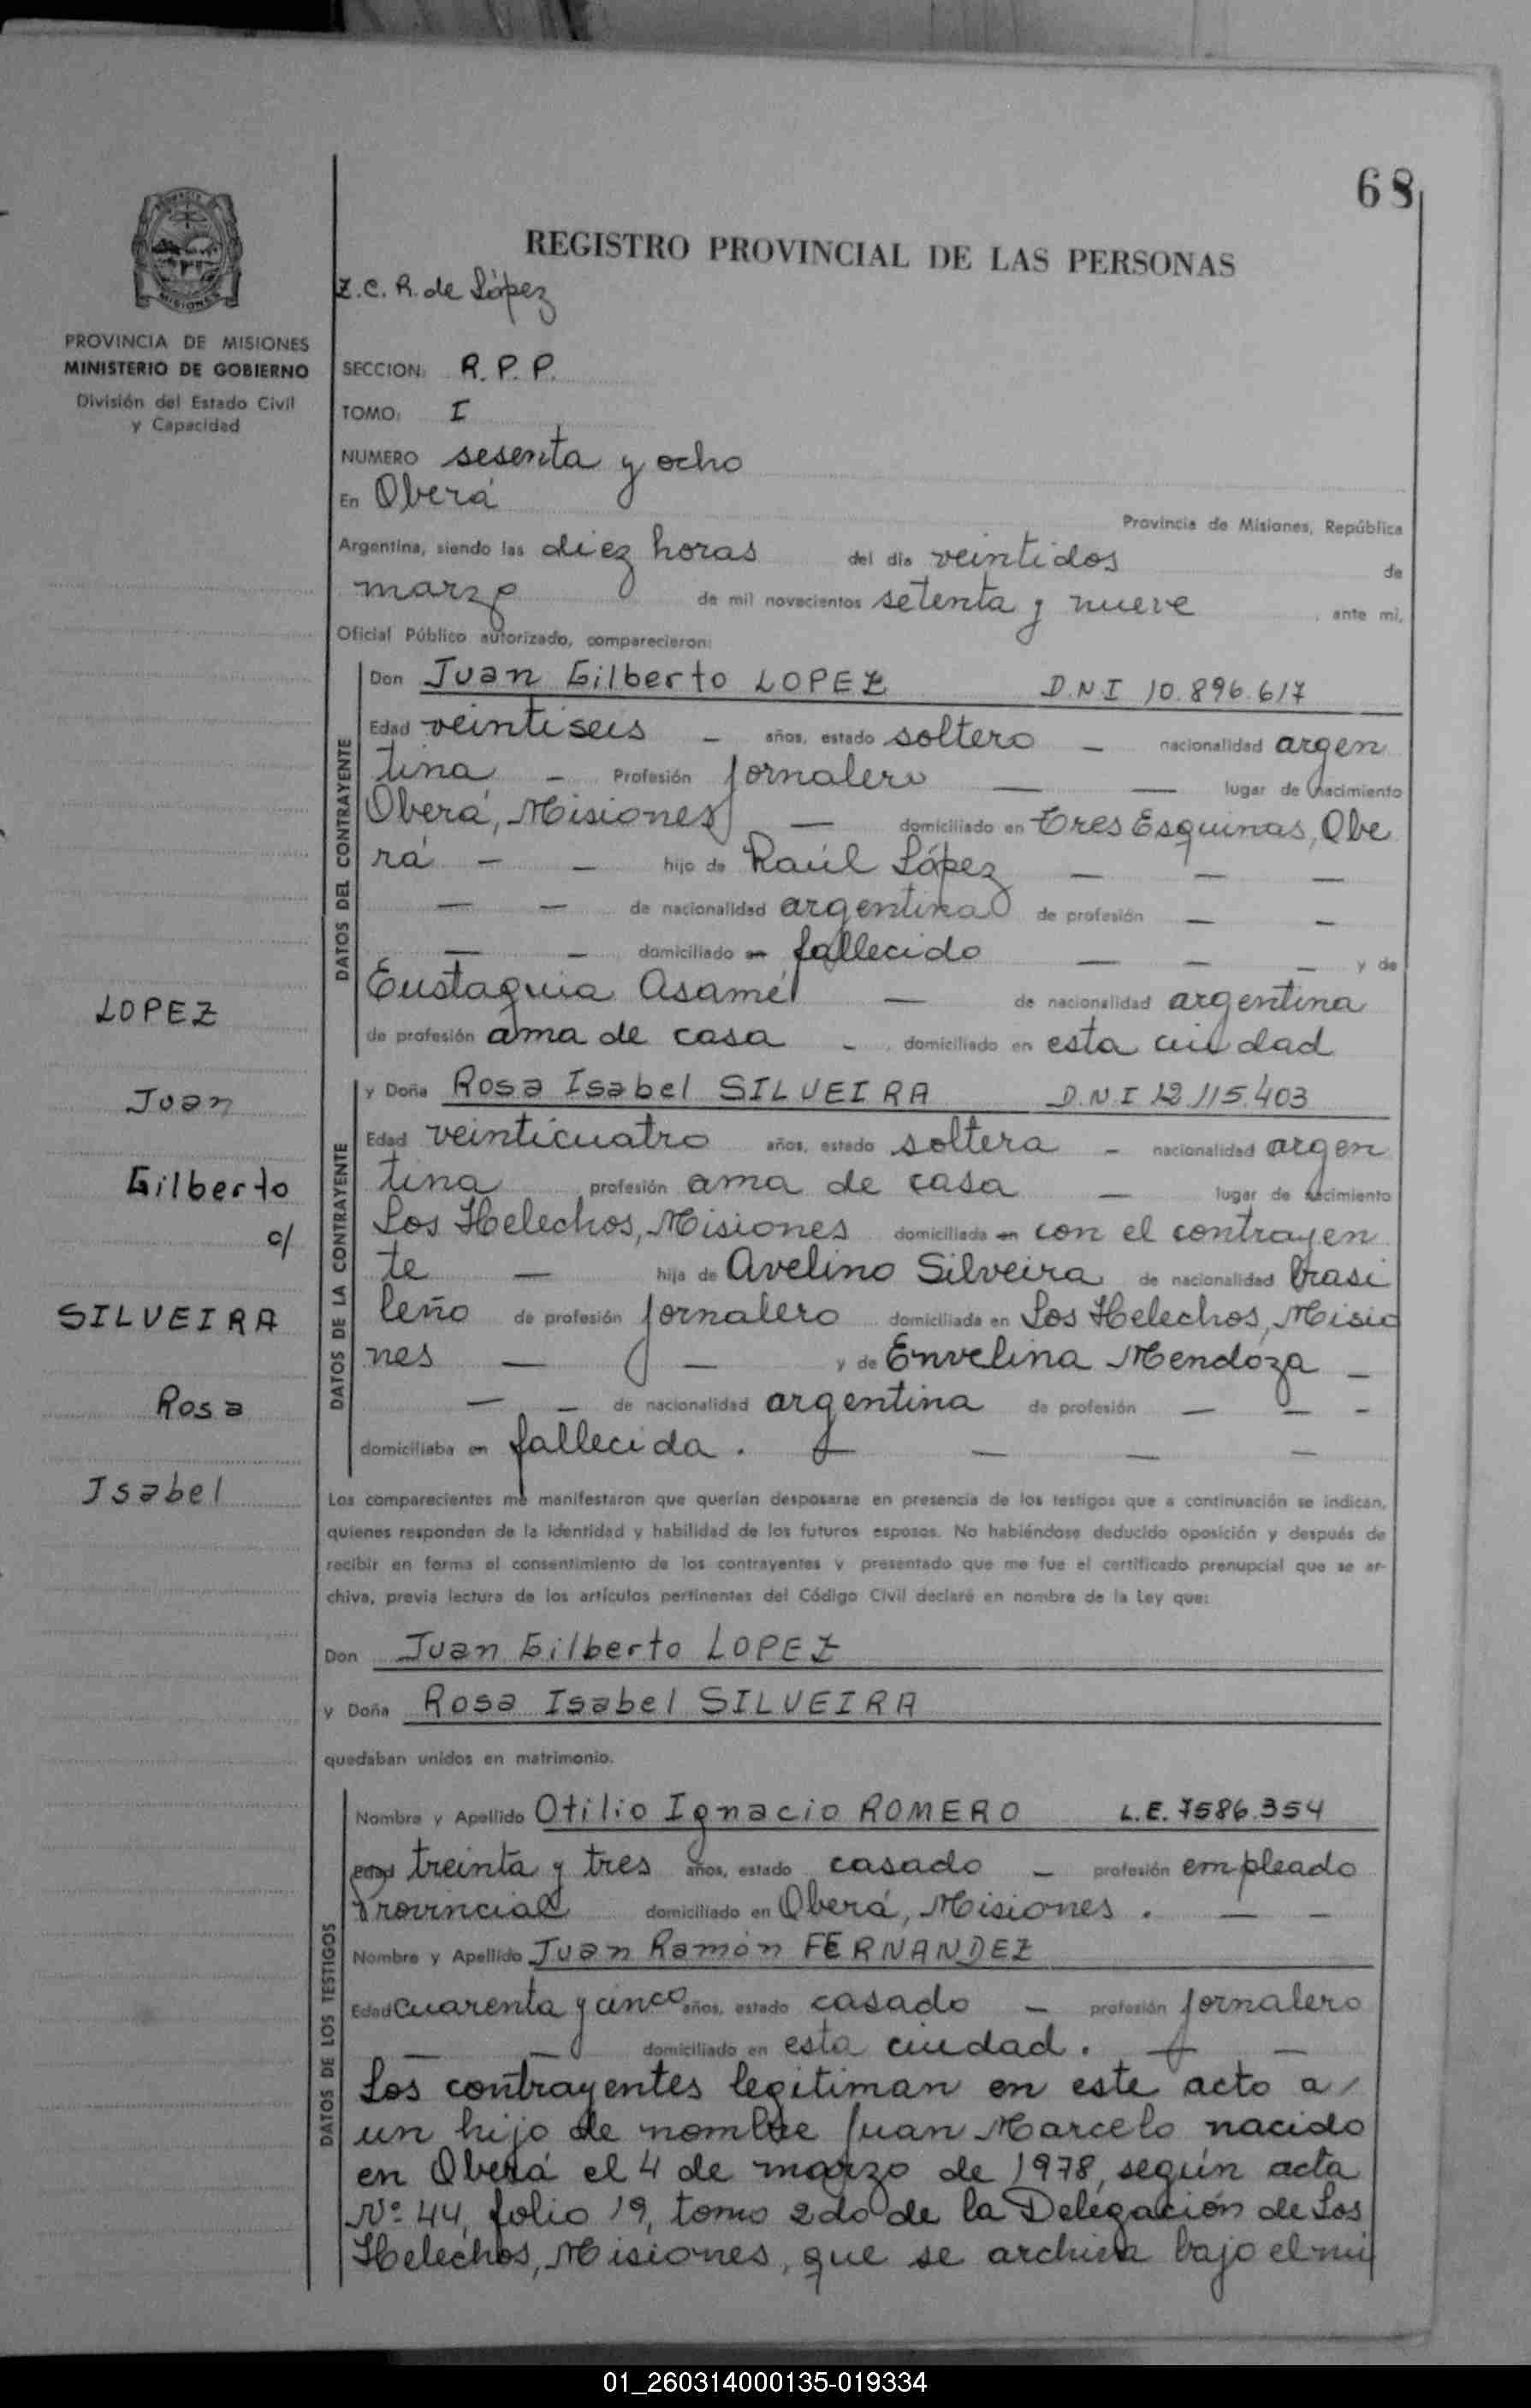 68
REGISTRO PROVINCIAL DE LAS PERSONAS
Z.C.R. de López
MISIONES
PROVINCIA DE MISIONES
MINISTERIO DE GOBIERNO
División del Estado Civil
y Capacidad
SECCION: R.P.P.
TOMO: I
NUMERO sesenta y ocho
En Oberá
Provincia de Misiones, República
Argentina, siendo las diez horas del día veintidos de
marzo de mil novecientos setenta y nueve, ante mi,
Oficial Público autorizado, comparecieron:
DATOS DEL CONTRAYENTE
Don Juan Gilberto LOPEZ D.N.I 10.896.617
Edad veintiseis - años, estado soltero - nacionalidad argen
tina - Profesión jornalero — — lugar de nacimiento
Oberá, Misiones — domiciliado en Tres Esquinas, Obe
rá - - hijo de Raúl López — — —
— — de nacionalidad argentina de profesión — -
— - domiciliado en fallecido — — — y de
Eustaquia Asamé — de nacionalidad argentina
de profesión ama de casa - domiciliado en esta ciudad
DATOS DE LA CONTRAYENTE
y Doña Rosa Isabel SILVEIRA D.N.I 12.115.403
Edad veinticuatro años, estado soltera - nacionalidad argen
tina profesión ama de casa — lugar de nacimiento
Los Helechos, Misiones domiciliada en con el contrayen
te — hija de Avelino Silveira de nacionalidad brasi
leño de profesión jornalero domiciliada en Los Helechos, Misio
nes — — y de Envelina Mendoza -
— - de nacionalidad argentina de profesión — — -
domiciliaba en fallecida. — — — —
LOPEZ
Juan
Gilberto
c/
SILVEIRA
Rosa
Isabel
Los comparecientes me manifestaron que querían desposarse en presencia de los testigos que a continuación se indican,
quienes responden de la identidad y habilidad de los futuros esposos. No habiéndose deducido oposición y después de
recibir en forma el consentimiento de los contrayentes y presentado que me fue el certificado prenupcial que se ar-
chiva, previa lectura de los artículos pertinentes del Código Civil declaré en nombre de la Ley que:
Don Juan Gilberto LOPEZ
y Doña Rosa Isabel SILVEIRA
quedaban unidos en matrimonio.
DATOS DE LOS TESTIGOS
Nombre y Apellido Otilio Ignacio ROMERO L.E. 7586.354
Edad treinta y tres años, estado casado - profesión empleado
Provincial domiciliado en Oberá, Misiones. — -
Nombre y Apellido Juan Ramón FERNANDEZ
Edad cuarenta y cinco años, estado casado - profesión jornalero
— — domiciliado en esta ciudad. — —
Los contrayentes legitiman en este acto a
un hijo de nombre Juan Marcelo nacido
en Oberá el 4 de marzo de 1978, según acta
Nº 44, folio 19, tomo 2do de la Delegación de Los
Helechos, Misiones, que se archiva bajo el nú
01_260314000135-019334